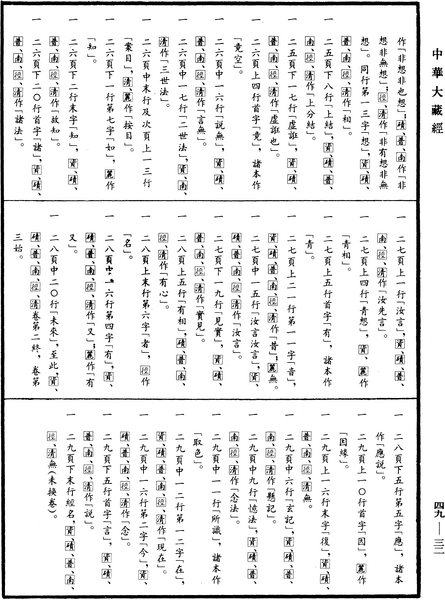 中華大藏經
作「非想非也想」；磧、普、南作「非
非想無想」；徑、清作「非有想非無
想」。同行第一三字「想」，資、磧、
普、南、徑、清作「相」。
一 二五頁下八行「上結」，資、磧、普、
南、徑、清作「上分結」。
一 二五頁下一七行「虛誑」，資、磧、
普、南、徑、清作「虛誑也」。
一 二六頁上四行首字「竟」，諸本作
「竟空」。
一 二六頁中一六行「説無」，資、磧、
普、南、徑、清作「言無」。
一 二六頁中一七行「二世法」，資、南、
清作「三世法」。
一 二六頁中末行及次頁上一三行
「案目」，清、麗作「按目」。
一 二六頁下一行第七字「如」，麗作
「知」。
一 二六頁下二行末字「知」，資、磧、
普、南、徑、清作「故知」。
一 二六頁下二〇行首字「諸」，資、磧、
普、南、徑、清作「諸法」。
一 二七頁上一行「汝言」，資、磧、普、
南、徑、清作「汝先言」。
一 二七頁上四行「青想」，資、麗作
「青相」。
一 二七頁上五行首字「有」，諸本作
「青」。
一 二七頁上二一行第一一字「音」，
資、磧、普、南、徑、清作「昔」；麗無。
一 二七頁中一五行「汝言汝言」，資、
磧、普、南、徑、清作「汝言」。
一 二七頁下一九行「見實」，資、磧、
普、南、徑、清作「實見」。
一 二八頁上五行「有相」，磧、普、南、
徑、清作「有心」。
一 二八頁上末行第六字「者」，徑作
「名」。
一 二八頁中一六行第四字「有」，資、
磧、普、南、徑、清作「又」；麗作「有
又」。
一 二八頁中二〇行「未來」，至此，資、
磧、普、南、徑、清卷第二終，卷第
三始。
一 二八頁下五行第五字「應」，諸本
作「應説」。
一 二九頁上一〇行首字「因」，麗作
「因緣」。
一 二九頁上一六行末字「復」，資、磧、
普、南、徑、清無。
一 二九頁中六行「玄記」，資、磧、普、
南、徑、清作「懸記」。
一 二九頁中九行「憶法」，資、磧、普、
南、徑、清作「念法」。
一 二九頁中一一行「所識」，諸本作
「取色」。
一 二九頁中一二行第一二字「在」，
資、磧、普、南、徑、清作「現在」。
一 二九頁中一六行第二字「今」，資、
磧、普、南、徑、清作「念」。
一 二九頁下五行首字「言」，資、磧、
普、南、徑、清作「説」。
一 二九頁下末行經名，資、磧、普、南、
徑、清無（未換卷）。
四九—三二